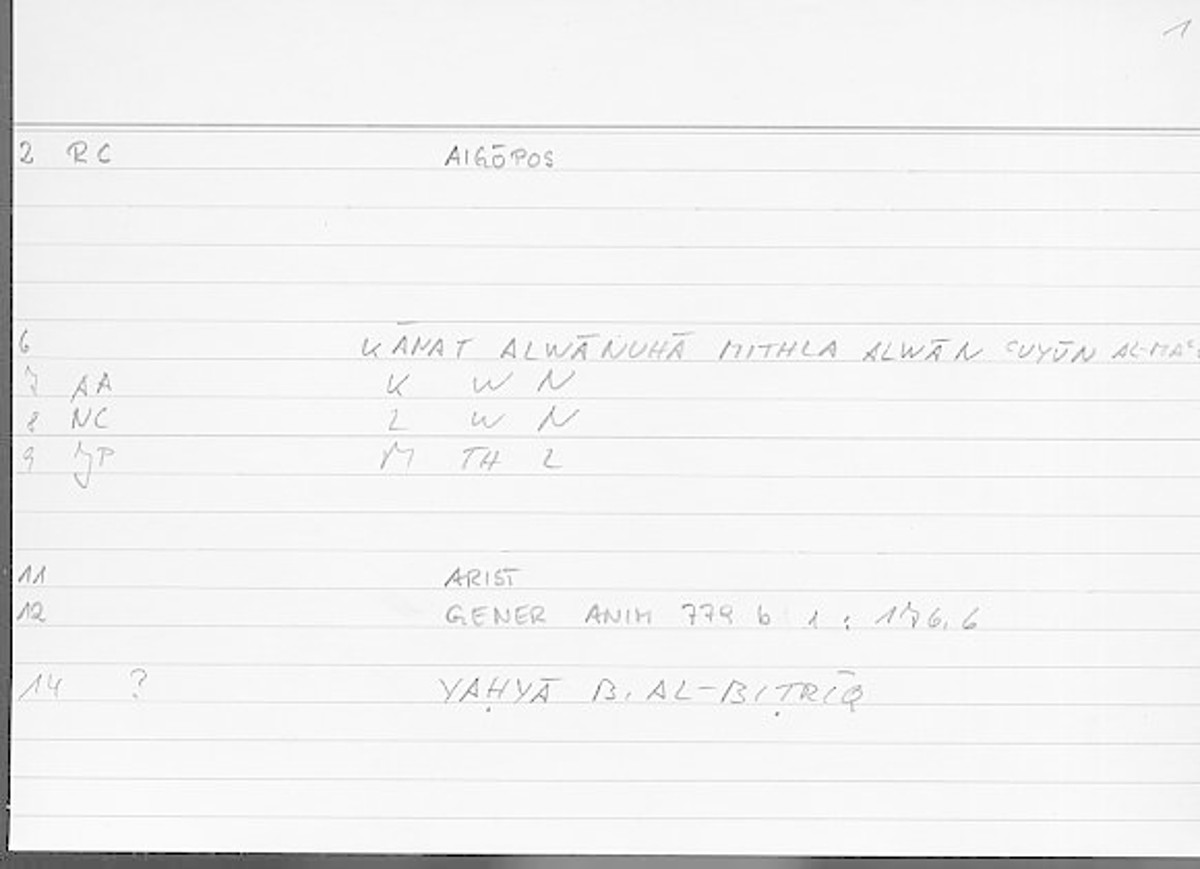 1
2 RC AIGŌPOS
6 KĀNAT ALWĀNUHĀ MITHLA ALWĀN ʿUYŪN AL-MAʿ
7 AA K W N
8 NC L W N
9 JP M TH L
11 ARIST
12 GENER ANIM 779 b 1 : 176,6
14 ? YAḤYĀ B. AL-BIṬRĪQ